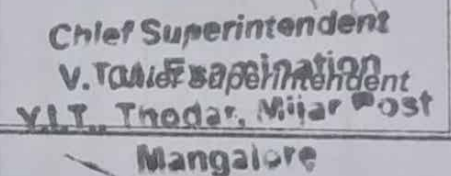 Chief Superintendent
V.T.U. Examination
Chief Superintendent
Y.I.T., Thodar, Mijar Post
Mangalore